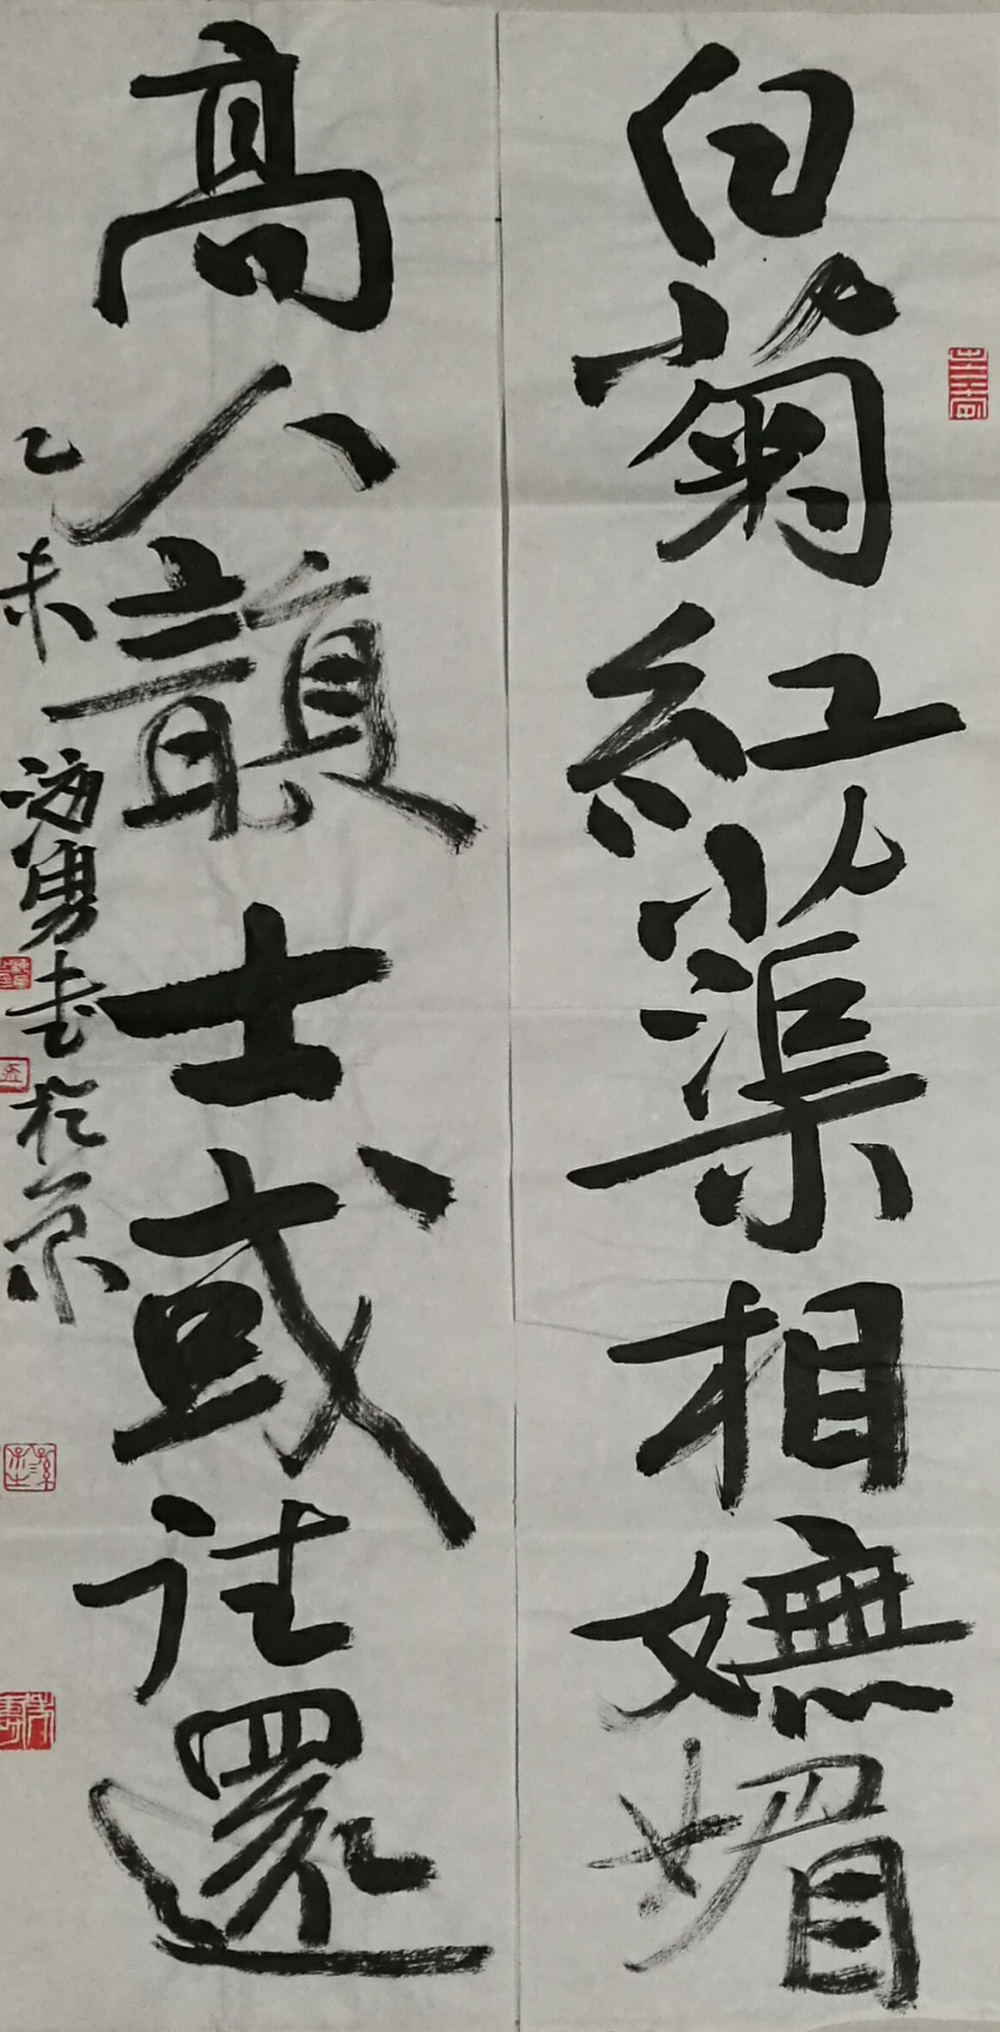 白菊紅蕖相嫵媚
高人韻士或往還
乙未海勇書於京